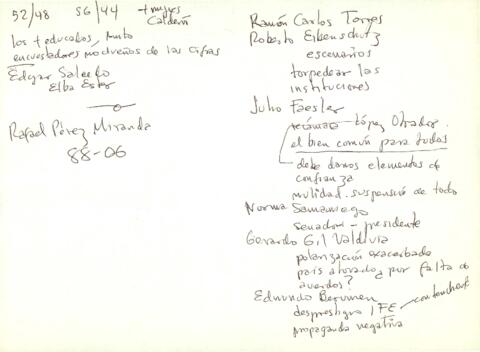 52/48 56/44 + mujeres
Calderón
los + educados,
encuestadores modteños de las cifras
Edgar Salcedo
Elba Ester
Rafael Pérez Miranda
88-06
Ramón Carlos Torres
Roberto Eibenschutz
escenarios
torpedear las
instituciones
Julio Faesler
López Obrador.
el bien común para todos
debe darnos elementos de
confianza
nulidad. suspensión de todo
Norma Samaniego
senadora - presidente
Gerardo Gil Valdivia
polarización exacerbada
país atorado, por falta de
acuerdos?
Edmundo Berumen
desprestigio IFE
propaganda negativa